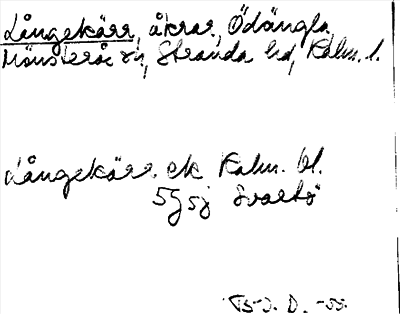 Långekärr, åkrar, Ödängla
Mönsterås sn, Stranda hd, Kalm. l.
Långekärr. ek Kalm. bl.
5G5j Svartö